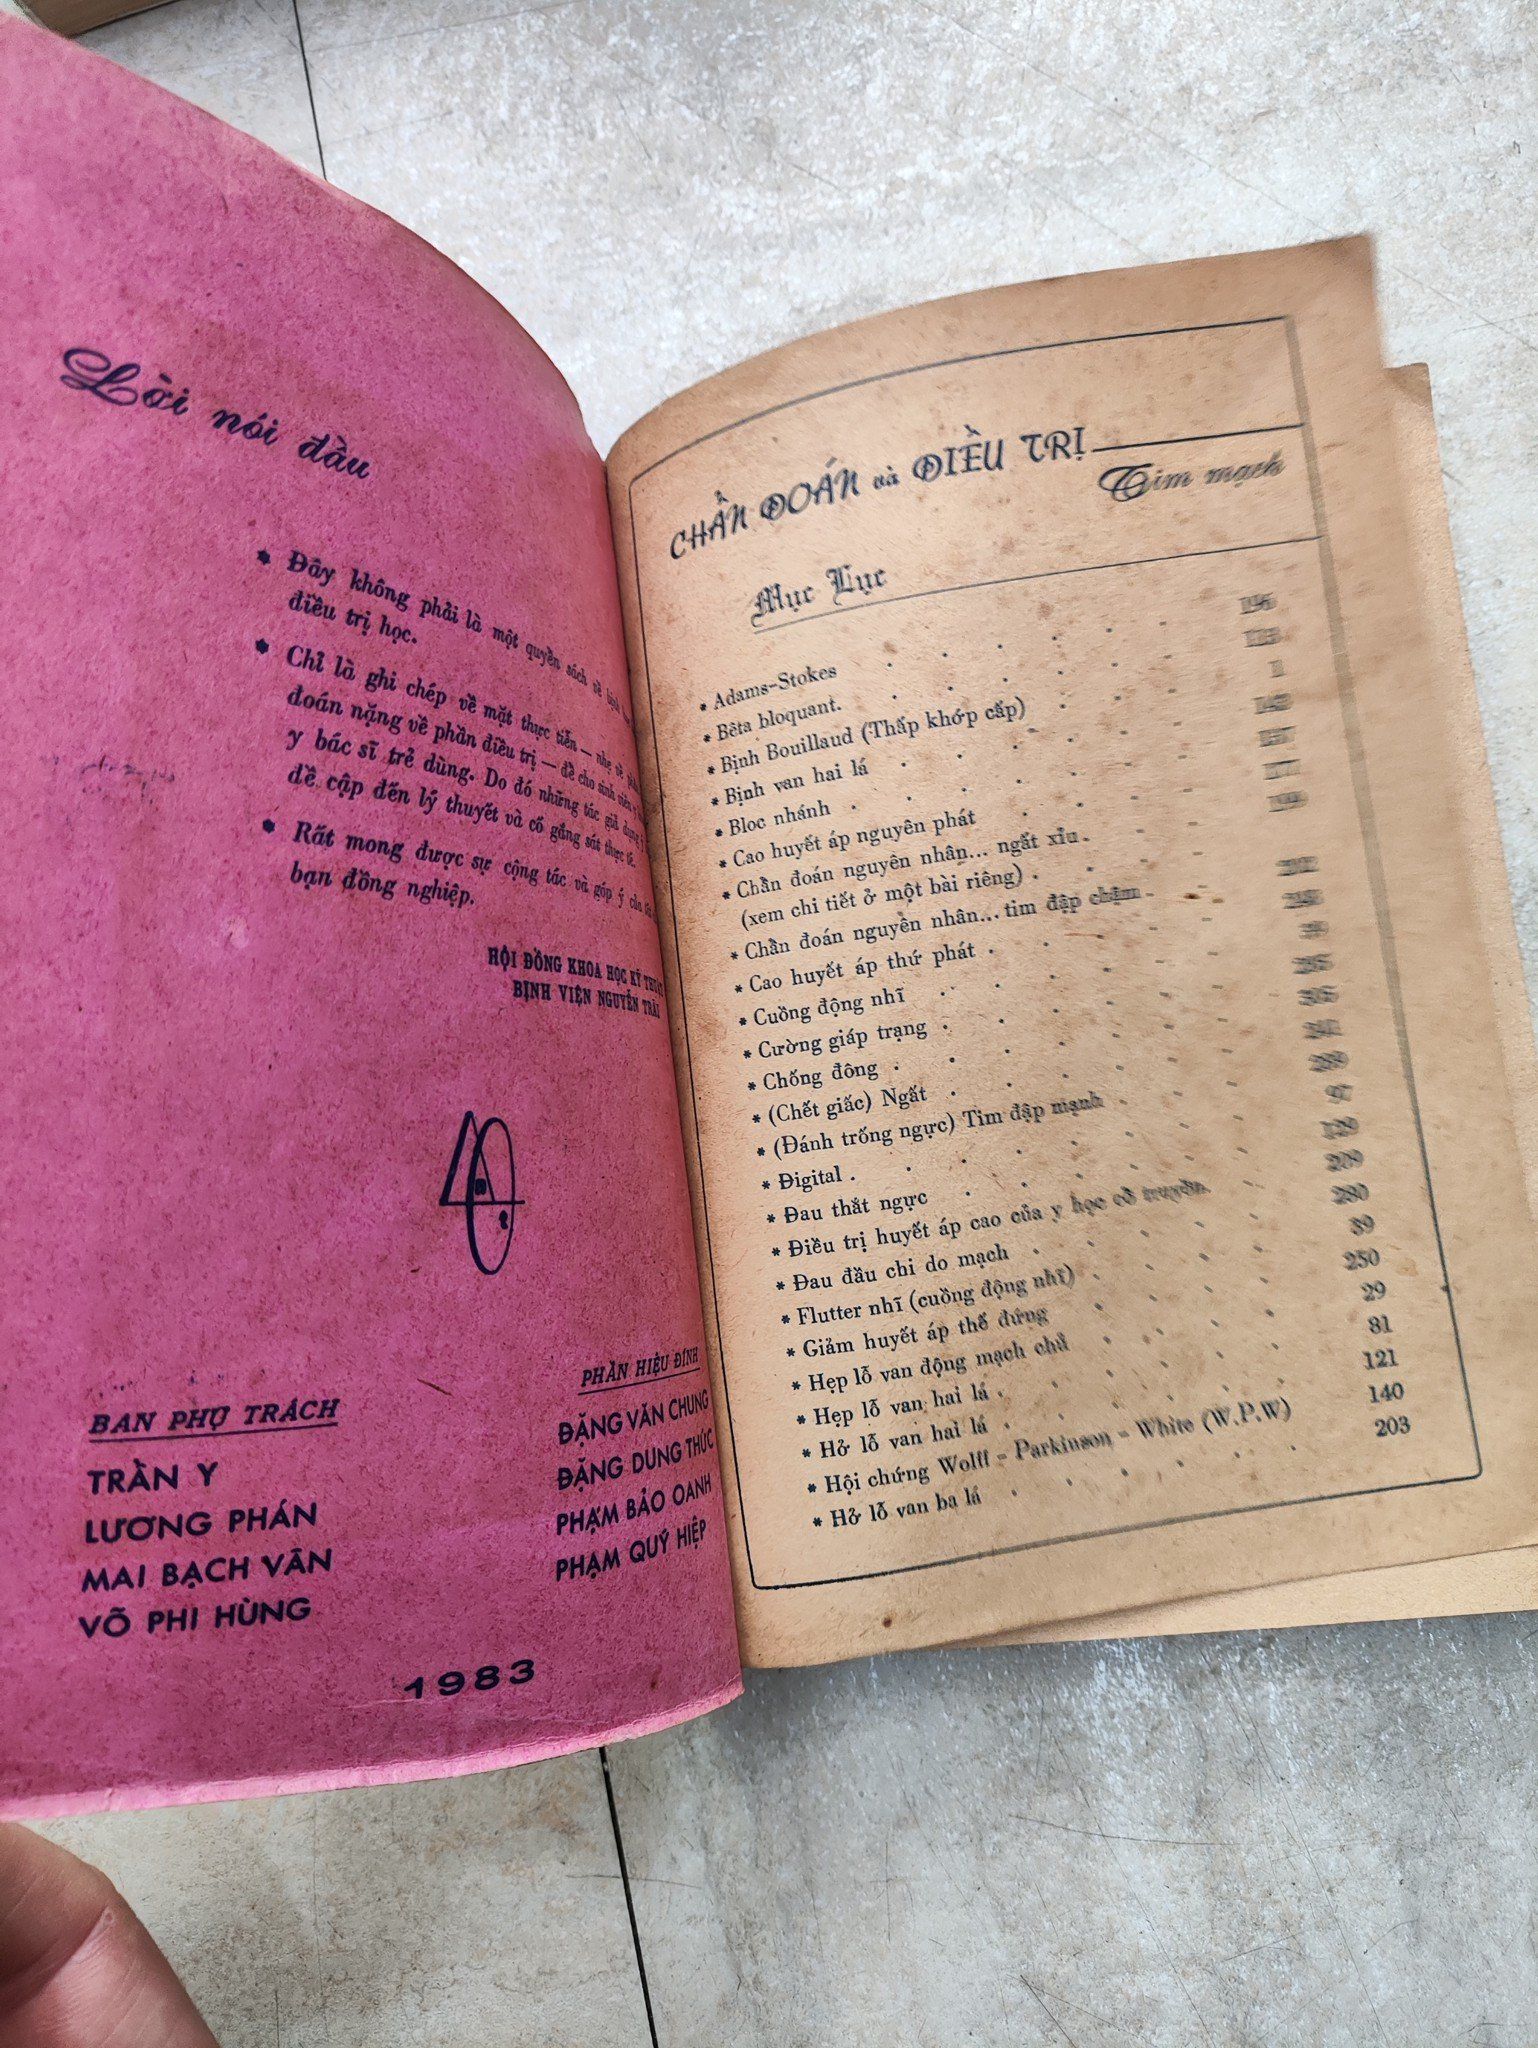 Lời nói đầu
* Đây không phải là một quyển sách về
điều trị học.
* Chỉ là ghi chép về mặt thực tiễn — nhẹ về
đoán nặng về phần điều trị — để cho sinh viên
y bác sĩ trẻ dùng. Do đó những tác giả
đề cập đến lý thuyết và cố gắng sát thực tế.
* Rất mong được sự cộng tác và góp ý của
bạn đồng nghiệp.
HỘI ĐỒNG KHOA HỌC KỸ THUẬT
BỊNH VIỆN NGUYỄN TRÃI
BAN PHỤ TRÁCH
TRẦN Y
LƯƠNG PHÁN
MAI BẠCH VÂN
VÕ PHI HÙNG
PHẦN HIỆU ĐÍNH
ĐẶNG VĂN CHUNG
ĐẶNG DUNG THỨC
PHẠM BẢO OANH
PHẠM QUÝ HIỆP
1983
CHẨN ĐOÁN và ĐIỀU TRỊ
Tim mạch
Mục Lục
* Adams-Stokes . . . . . 196
* Bêta bloquant. . . . . 123
* Bịnh Bouillaud (Thấp khớp cấp) . . . 1
* Bịnh van hai lá . . . .
* Bloc nhánh . . . . .
* Cao huyết áp nguyên phát . . .
* Chẩn đoán nguyên nhân... ngất xỉu .
(xem chi tiết ở một bài riêng) . . . .
* Chẩn đoán nguyên nhân... tim đập chậm . .
* Cao huyết áp thứ phát . . . .
* Cuồng động nhĩ . . . . .
* Cường giáp trạng . . . . .
* Chống đông . . . . .
* (Chết giấc) Ngất . . . . .
* (Đánh trống ngực) Tim đập mạnh . . .
* Digital . . . . . 97
* Đau thắt ngực . . . . . 129
* Điều trị huyết áp cao của y học cổ truyền. . 209
* Đau đầu chi do mạch . . . . 280
* Flutter nhĩ (cuồng động nhĩ) . . . . 39
* Giảm huyết áp thế đứng . . . . 250
* Hẹp lỗ van động mạch chủ . . . . 29
* Hẹp lỗ van hai lá . . . . . 81
* Hở lỗ van hai lá . . . . . 121
* Hội chứng Wolff - Parkinson - White (W.P.W) 140
* Hở lỗ van ba lá . . . . . 203